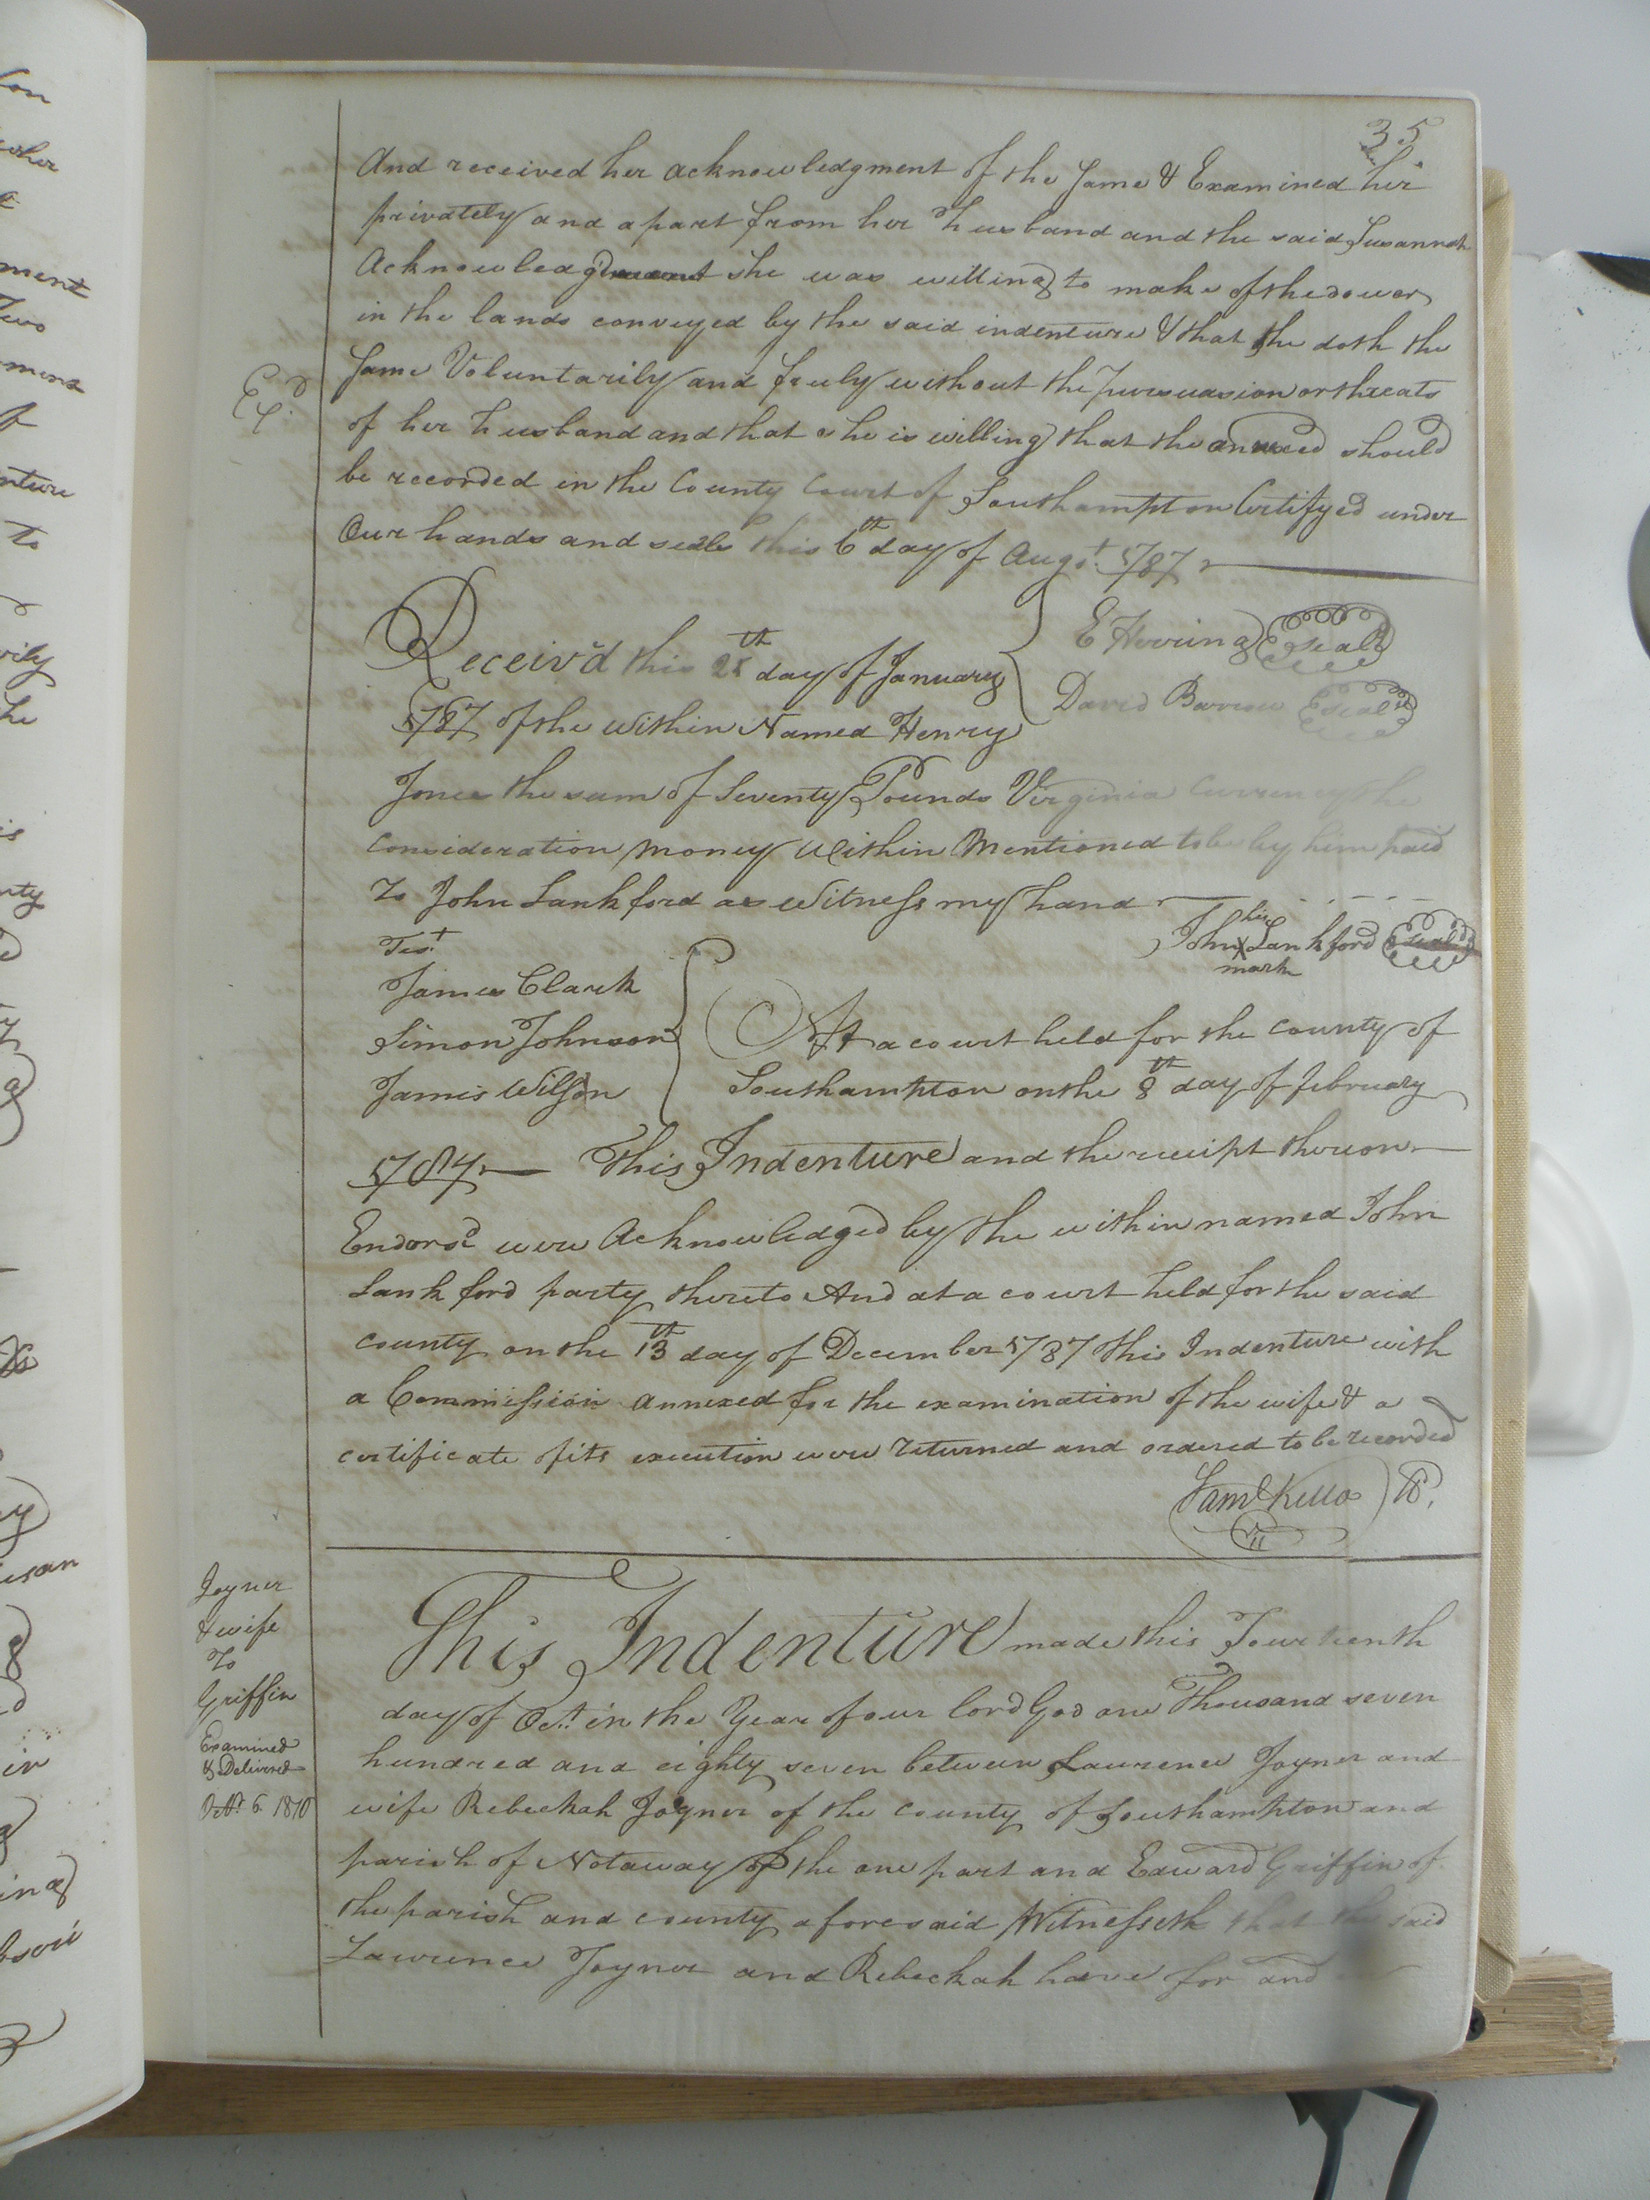 35
And received her acknowledgment of the same & Examined her
privately and apart from her husband and the said Susannah
Acknowledg'd she was willing to make of the dower
in the lands conveyed by the said indenture & that she doth the
Same Voluntarily and freely without the Pursuasion or threats
of her husband and that she is willing that the annexed should
be recorded in the County Court of Southampton Certifyed under
Our hands and seals this 6th day of Augst. 1787
Exd.
E Herring Seal
David Barrow Seal
Receiv'd this 25th day of January
1787 of the within Named Henry
Jones the sum of Seventy Pounds Virginia Currency the
Consideration money within Mentioned to be by him paid
To John Lankford as Witness my hand
Test
his
John X Lankford Seal
mark
James Clark
Simon Johnson
James Wilson
At a court held for the county of
Southampton on the 8th day of February
1787 This Indenture and the receipt thereon
Endorsd were Acknowledged by the within named John
Lankford party thereto And at a court held for the said
county on the 13th day of December 1787 this Indenture with
a Commission annexed for the examination of the wife & a
certificate of its execution were returned and ordered to be recorded
Saml Kello
Joyner
& wife
To
Griffin
Examined
& Deliverd
Octr. 6 1810
This Indenture made this Fourteenth
day of Oct. in the Year of our lord God one Thousand seven
hundred and eighty seven between Lawrence Joyner and
wife Rebeckah Joyner of the county of Southampton and
parish of Notaway of the one part and Edward Griffin of
the parish and county aforesaid Witnesseth that the said
Lawrence Joyner and Rebeckah have for and